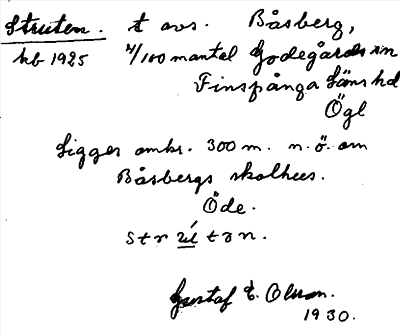 Struten. t avs. Båsberg,
hb 1925 4/100 mantel Godegårds sn
Finspånga läns hd
Ögl
Ligger omkr. 300 m. n.ö. om
Båsbergs skolhus.
Öde.
strútən.
Gustaf E. Olsson.
1930.